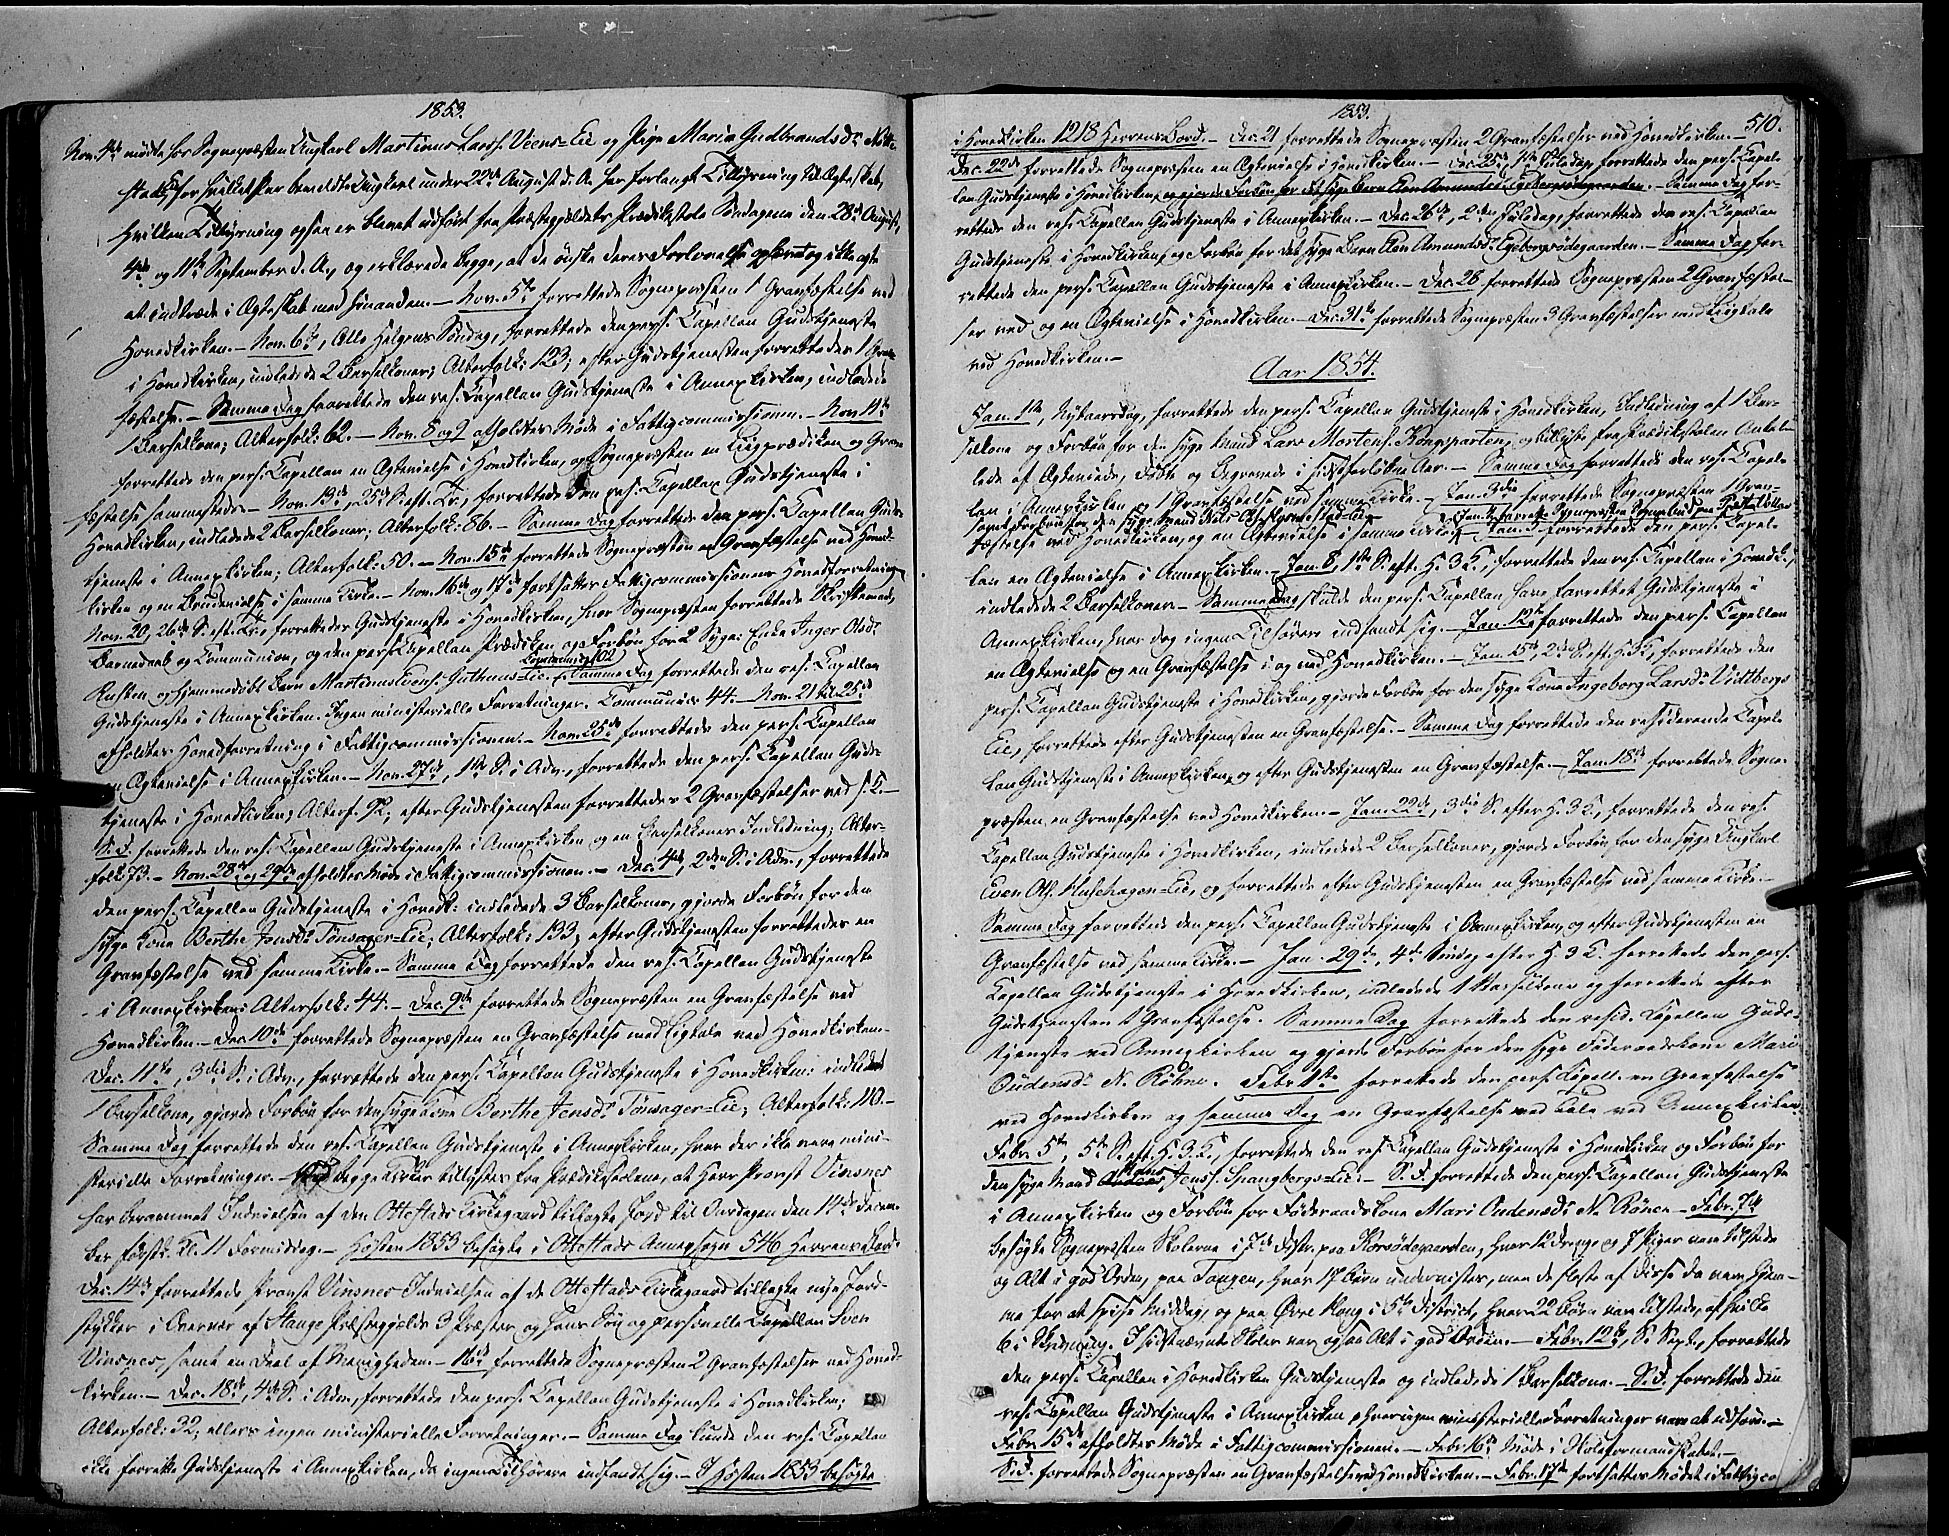 1853.
Nov. 4de mødte hos Sognepræsten Ungkarl Martinus Larss. Veens-Eie og Pige Maria Gudbrandsdr.
for hvilket Par bemeldte Ungkarl under 22de August d. A. har forlangt Tillysning til Ægteskab,
hvilken Tillysning ogsaa er blevet udført fra Præstegjældets Prædikestole Søndagene den 28de August,
4de og 11te September d. A., og erklærede begge, at de ønske deres Forlovelse ophævet og ikke agte
at indtræde i Ægteskab med hinanden. — Nov. 5te forrettede Sognepræsten 1 Gravfæstelse ved
Hovedkirken. — Nov. 6te, Alle Helgens Søndag, forrettede den pers. Capellan Gudstjeneste
i Hovedkirken, indledede 2 Barselkoner; Alterfolk: 123; efter Gudstjenesten forrettedes 1 Grav-
fæstelse. — Samme Dag forrettede den res. Capellan Gudstjeneste i Annexkirken, indledede
1 Barselkone; Alterfolk: 62. — Nov. 8 og 9 afholdtes Møde i Fattigcommissionen. — Nov. 11te
forrettede den pers. Capellan en Ægtevielse i Hovedkirken, og Sognepræsten en Liigprædiken og Grav-
fæstelse sammesteds. — Nov. 13de, 25de S. eft. Tr., forrettede den res. Capellan Gudstjeneste i
Hovedkirken, indledede 2 Barselkoner; Alterfolk: 86. — Samme Dag forrettede den pers. Capellan Guds-
tjeneste i Annexkirken; Alterfolk: 50. — Nov. 15de forrettede Sognepræsten en Gravfæstelse ved Hoved-
kirken og en Brudevielse i samme Kirke. — Nov. 16de og 17de fortsattes Fattigcommissionens Hovedforretning.
Nov. 20, 26de S. eft. Tr., forrettedes Gudstjeneste i Hovedkirken, hvor Sognepræsten forrettede Skriftemaal,
Barnedaab og Communion, og den pers. Capellan Prædiken og Forbøn for 2 Syge: Enke Inger Olsdr.
Communic. 102
og hjemmedøbt Barn Martinus Guthuus-Eie. Samme Dag forrettede den res. Capellan
Gudstjeneste i Annexkirken. Ingen ministerielle Forretninger. Communic. 44. — Nov. 21 til 25de
afholdtes Hovedforretning i Fattigcommissionen. — Nov. 25de forrettede den pers. Capellan
en Ægtevielse i Annexkirken. — Nov. 27de, 1ste S. i Adv., forrettede den pers. Capellan Guds-
tjeneste i Hovedkirken; Alterf. 92; efter Gudstjenesten forrettedes 2 Gravfæstelser ved s. K. —
S. D. forrettede den res. Capellan Gudstjeneste i Annexkirken og en Barselkones Indledning; Alter-
folk 73. — Nov. 28de og 29de afholdtes Møde i Fattigcommissionen. — Dec. 4de, 2den S. i Adv., forrettede
den pers. Capellan Gudstjeneste i Hovedk: indledede 3 Barselkoner, gjorde Forbøn for den
syge Kone Berthe Jensdr. Tønsager-Eie; Alterfolk: 133; efter Gudstjenesten forrettedes en
Gravfæstelse ved samme Kirke. — Samme Dag forrettede den res. Capellan Gudstjeneste
i Annexkirken; Alterfolk: 44. — Dec. 9de forrettede Sognepræsten en Gravfæstelse ved
Hovedkirken. — Dec. 10de forrettede Sognepræsten en Gravfæstelse med Ligtale ved Hovedkirken.
Dec. 11te, 3die S. i Adv., forrettede den pers. Capellan Gudstjeneste i Hovedkirken: indledet
1 Barselkone, gjorde Forbøn for den syge Kone Berthe Jensdr. Tønsager-Eie; Alterfolk: 110. —
Samme Dag forrettede den res. Capellan Gudstjeneste i Annexkirken, hvor der ikke vare mini-
sterielle Forretninger. — Ved begge Kirker tillystes fra Prædikestolene, at Herr Provst Vinsnes
har berammet Indvielsen af den Ottestads Kirkegaard tillagte Jord til Onsdagen den 14de Decem-
ber førstk. Kl. 11 Formiddag. — Høsten 1853 besøgte i Ottestads Annexsogn 546 Herrens Bord.
Dec. 14de forrettede Provst Vinsnes Indvielsen af de Ottestads Kirkegaard tillagte nye Jord-
stykker i Overvær af Stange Præstegjælds 3 Præster og hans Søn og personelle Capellan Sven
Vinsnes, samt en Deel af Menigheden. — 16de forrettede Sognepræsten 2 Gravfæstelser ved Hoved-
kirken. — Dec. 18de, 4de S. i Adv., forrettede den pers. Capellan Gudstjeneste i Hovedkirken;
Alterfolk: 32; ellers ingen ministerielle Forretninger. — Samme Dag kunde den res. Capellan
ikke forrette Gudstjeneste i Annexkirken, da ingen Tilhørere indfandt sig. — I Høsten 1853 besøgte
1853.
510.
i Hovedkirken 1218 Herrens Bord. — Dec. 21 forrettede Sognepræsten 2 Gravfæstelser ved Hovedkirken. —
Dec. 22de forrettede Sognepræsten en Ægtevielse i Hovedkirken. — Dec. 25de, 1ste Juledag, forrettede den pers. Capel-
lan Gudstjeneste i Hovedkirken, og gjorde Forbøn for det syge Barn Elen Amundsdr. — Samme Dag for-
rettede den res. Capellan Gudstjeneste i Annexkirken. — Dec. 26de, 2den Juledag, forrettede den res. Capellan
Gudstjeneste i Hovedkirken, og Forbøn for det syge Barn Elen Amundsdr. Egebergsødegaarden. — Samme Dag for-
rettede den pers. Capellan Gudstjeneste i Annexkirken. — Dec. 28 forrettede Sognepræsten 2 Gravfæstel-
ser ved og en Ægtevielse i Hovedkirken. — Dec. 31te forrettede Sognepræsten 3 Gravfæstelser med Liigtale
ved Hovedkirken. —
Aar 1854.
Jan. 1ste, Nytaarsdag, forrettede den pers. Capellan Gudstjeneste i Hovedkirken, Indledning af 1 Bar-
selkone og Forbøn for den syge Mand Lars Mortens. Kongsparten, og tillyste fra Prædikestolen Antal-
lede af Ægteviede, Døbte og Begravede i sidstforløbne Aar. — Samme Dag forrettede den res. Capel-
lan i Annexkirken og 1 Gravfæstelse ved samme Kirke. — Jan. 3die forrettede Sognepræsten 1 Grav-
samt Forbøn for den syge Mand Nils
Jan. 4 forrettede Sognepræsten
fæstelse ved Hovedkirken, og en Ægtevielse i samme Kirke. — Jan. 5 forrettede den pers. Capel-
lan en Ægtevielse i Annexkirken. — Jan. 8, 1ste S. eft. H. 3 K., forrettede den res. Capellan i Hovedk.,
indledede 2 Barselkoner. — Samme Dag skulde den pers. Capellan have forrettet Gudstjeneste i
Annexkirken, hvor dog ingen Tilhørere indfandt sig. — Jan. 12te forrettede den pers. Capellan
en Ægtevielse og en Gravfæstelse i og ved Hovedkirken. — Jan. 15de, 2den S. eft. H. 3 K., forrettede den
pers. Capellan Gudstjeneste i Hovedkirken, gjorde Forbøn for den syge Kone Ingeborg Larsdr. Vidtbergs-
Eie, forrettede efter Gudstjenesten en Gravfæstelse. — Samme Dag forrettede den residerende Capel-
lan Gudstjeneste i Annexkirken, og efter Gudstjenesten en Gravfæstelse. — Jan. 18de forrettede Sogne-
præsten en Gravfæstelse ved Hovedkirken. — Jan. 22de, 3die S. efter H. 3 K., forrettede den res.
Capellan Gudstjeneste i Hovedkirken, indledede 2 Barselkoner, gjorde Forbøn for den syge Ungkarl
Even Ols. Husehagen-Eie, og forrettede efter Gudstjenesten en Gravfæstelse ved samme Kirke. —
Samme Dag forrettede den pers. Capellan Gudstjeneste i Annexkirken, og efter Gudstjenesten en
Gravfæstelse ved samme Kirke. — Jan. 29de, 4de Søndag efter H. 3 K. forrettede den pers.
Capellan Gudstjeneste i Hovedkirken, indledede 1 Barselkone og forrettede efter
Gudstjenesten 1 Gravfæstelse. Samme Dag forrettede den resid. Capellan Guds-
tjeneste ved Annexkirken og gjorde Forbøn for den syge Føderaadskone Mari
Oudensdr. N. Røhne. Febr. 1ste forrettede den pers. Capell. en Gravfæstelse
ved Hovedkirken og samme Dag en Gravfæstelse med Tale ved Annexkirken.
Febr. 5te, 5te S. eft. H. 3. K., forrettede den res. Capellan Gudstjeneste i Hovedkirken og Forbøn for
den syge Mand Jenss. Spangbergs-Eie. — S. D. forrettede den pers. Capellan Gudstjeneste
i Annexkirken og Forbøn for Føderaadskone Mari Oudensdr. N. Røne. — Febr. 7de
besøgte Sognepræsten Skolerne i 7de Distr. paa Korsødegaarden, hvor 12 Drenge og 7 Piger vare tilstede
og Alt i god Orden, paa Tangen, hvor 17 Børn undervistes, men de fleste af disse da vare hjem-
me for at spise Middag, og paa Øvre Kaug i 5te District, hvor 22 Børn vare tilstede, af hvilke
6 i I sidstnævnte Skoler var ogsaa Alt i god Orden. — Febr. 12te, S. Sept., forrettede
den pers. Capellan i Hovedkirken Gudstjeneste og indledede 1 Barselkone. — S. D. forrettede den
res. Capellan Gudstjeneste i Annexkirken, hvor ingen ministerielle Forretninger vare at udføre. —
Febr. 15de afholdtes Møde i Fattigcommissionen. — Febr. 16de Møde i Holeformandskabet. —
S. D. forrettede Sognepræsten en Gravfæstelse ved Hovedkirken. — Febr. 17de fortsattes Mødet i Fattigco